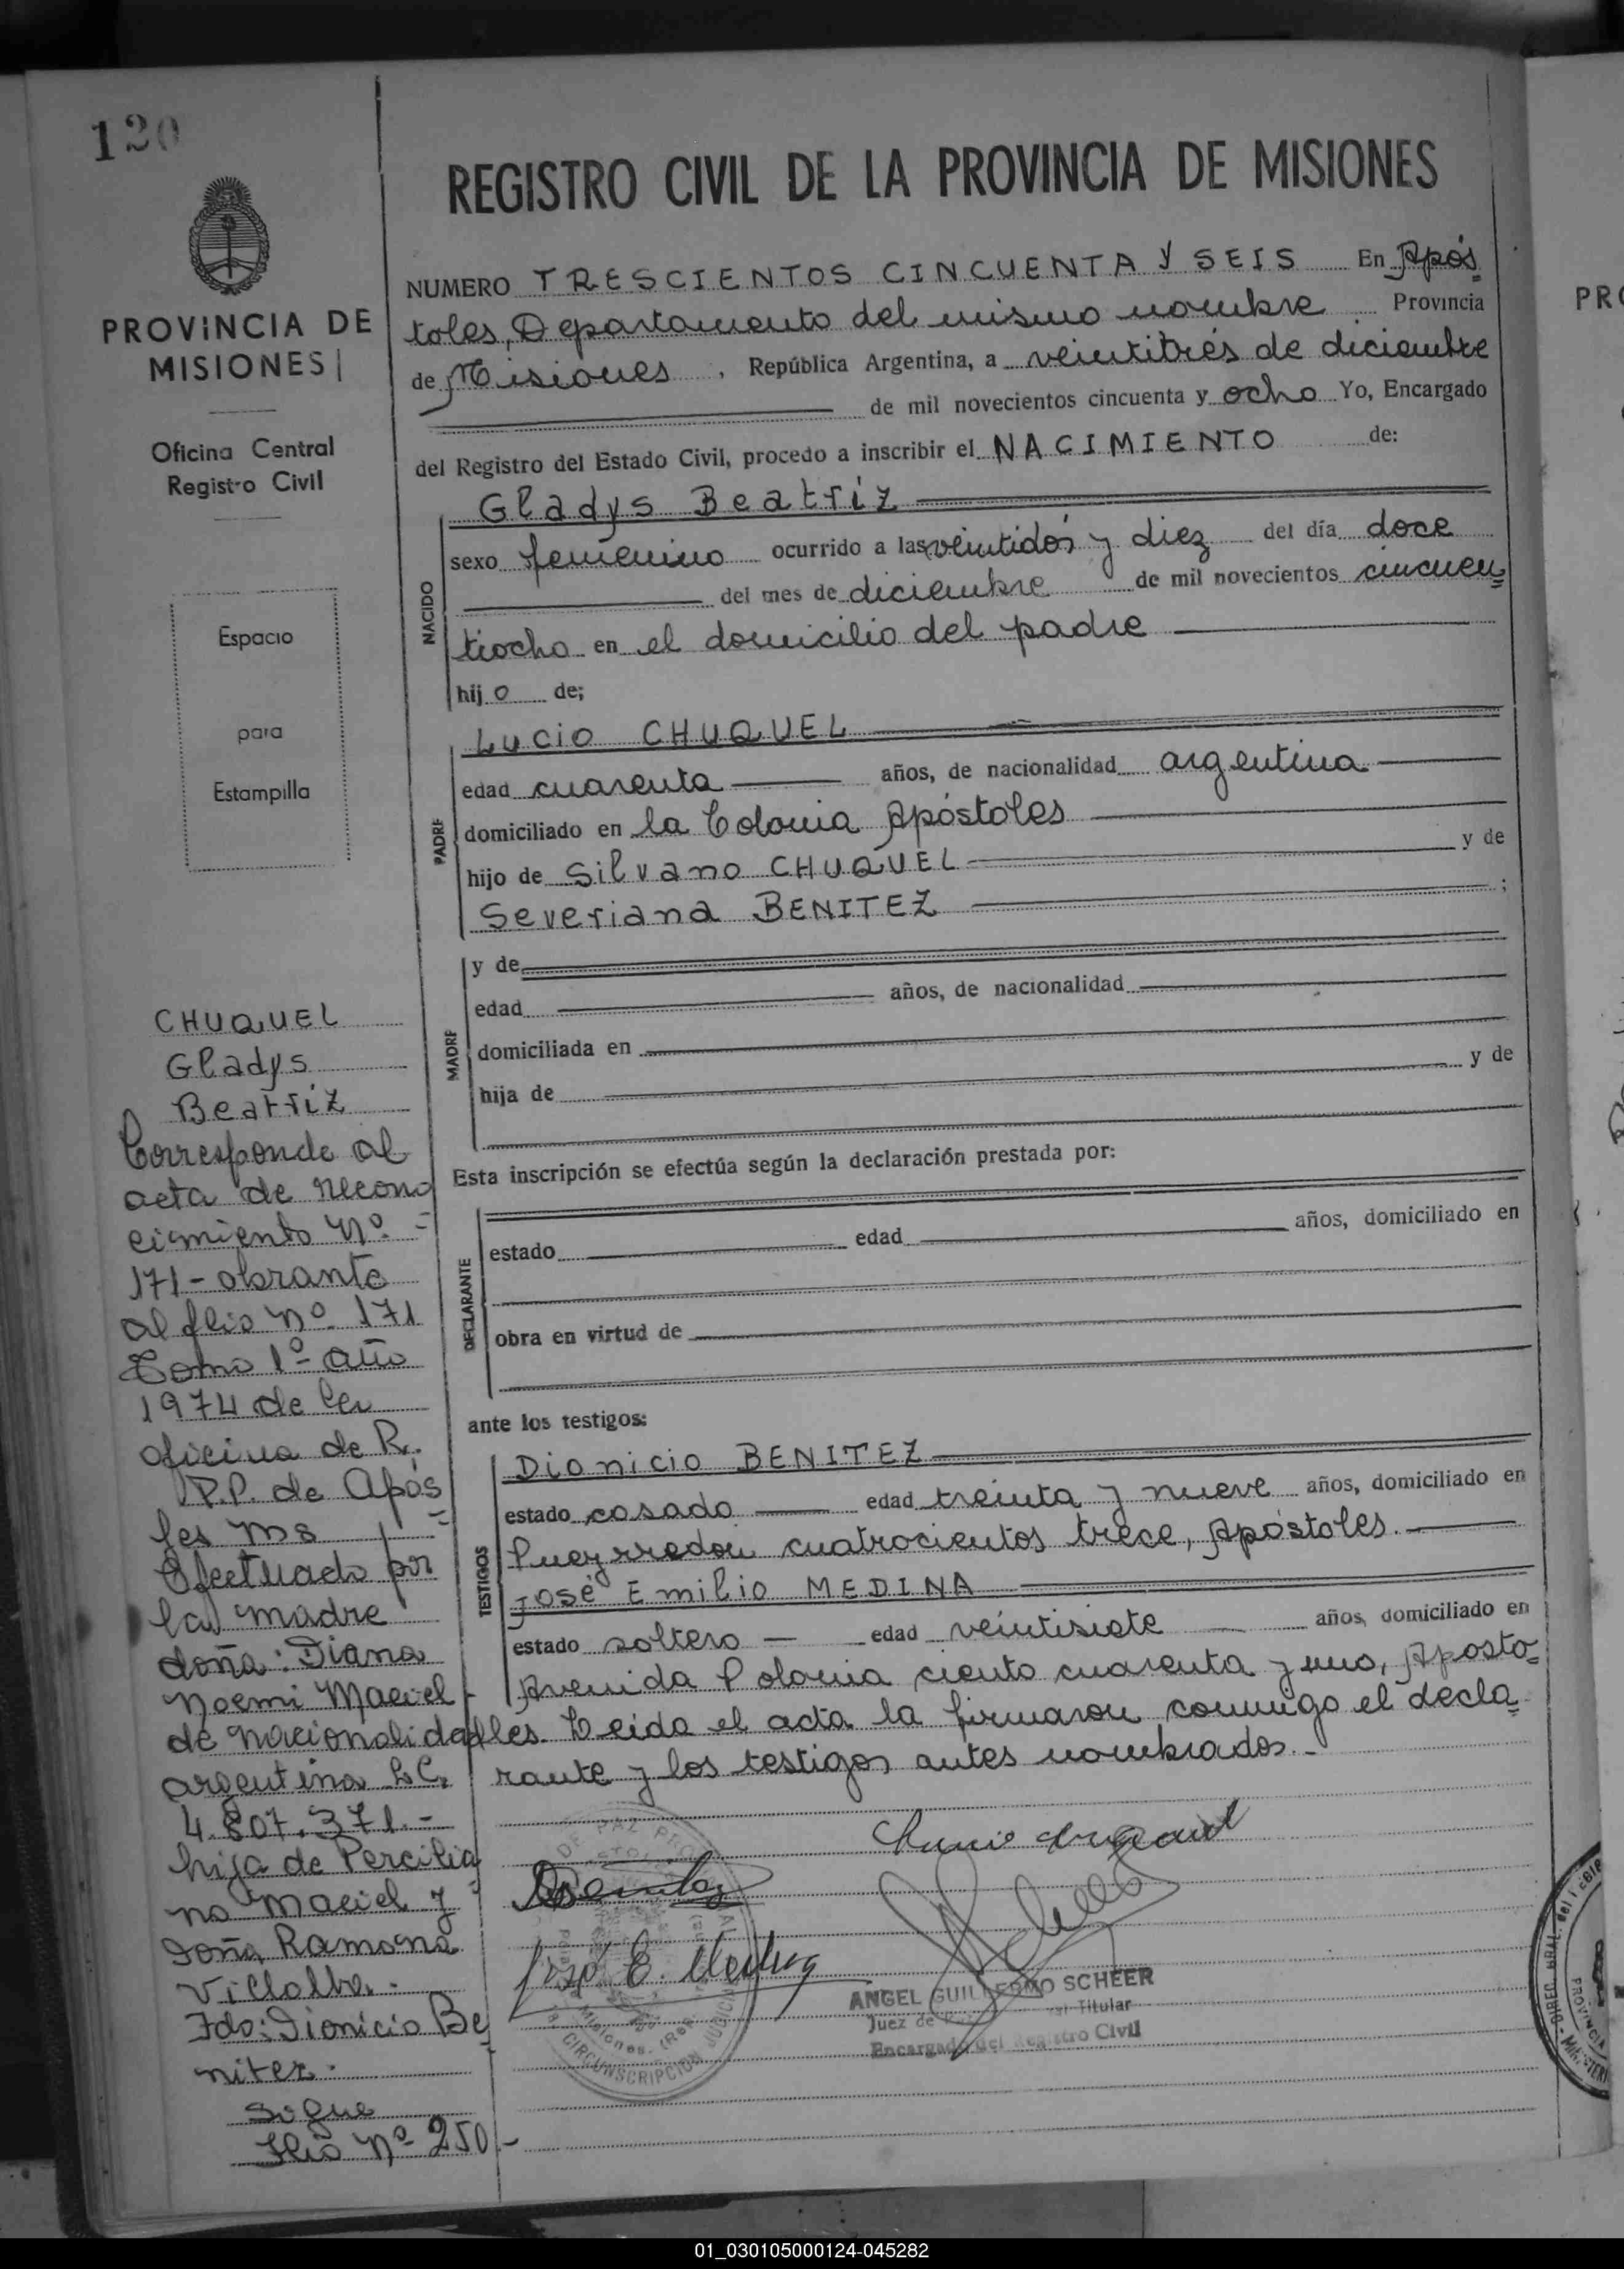 120
PROVINCIA DE
MISIONES
Oficina Central
Registro Civil
Espacio
para
Estampilla
REGISTRO CIVIL DE LA PROVINCIA DE MISIONES
NUMERO TRESCIENTOS CINCUENTA Y SEIS En Após
toles, Departamento del mismo nombre Provincia
de Misiones, República Argentina, a veintitrés de diciembre
de mil novecientos cincuenta y ocho Yo, Encargado
del Registro del Estado Civil, procedo a inscribir el NACIMIENTO de:
Gladys Beatriz
NACIDO
sexo femenino ocurrido a las veintidós y diez del día doce
del mes de diciembre de mil novecientos cincuen=
tiocho en el domicilio del padre
hijo de;
PADRE
Lucio CHUQUEL
edad cuarenta años, de nacionalidad argentina
domiciliado en la Colonia Apóstoles
hijo de Silvano CHUQUEL y de
Severiana BENITEZ ;
MADRE
y de
edad años, de nacionalidad
domiciliada en
hija de y de
Esta inscripción se efectúa según la declaración prestada por:
DECLARANTE
estado edad años, domiciliado en
obra en virtud de
ante los testigos:
TESTIGOS
Dionicio BENITEZ
estado casado edad treinta y nueve años, domiciliado en
Pueyrredón cuatrocientos trece, Apóstoles.
José Emilio MEDINA
estado soltero edad veintisiete años, domiciliado en
Avenida Polonia ciento cuarenta y uno, Aposto=
les. Leida el acta la firmaron conmigo el decla=
rante y los testigos antes nombrados.-
CHUQUEL
Gladys
Beatriz
Corresponde al
acta de recono
cimiento Nº.=
171-obrante
al flio Nº 171
Tomo 1º- año
1974 de la
oficina de R.
P.P. de Após
les Ms
Efectuado por
la madre
doña: Diana
Noemi Maciel
de nacionalidad
argentina L.C.
4.807.371.-
hija de Percilia
no Maciel y
doña Ramona
Villalba.
Fdo: Dionicio Be
nitez.
Sigue
flio Nº 250.-
José E. Medina
ANGEL GUILLERMO SCHEER
Juez de Titular
Encargado del Registro Civil
DE PAZ
Misiones. (Rep.
CIRCUNSCRIPCION JUDICIAL
DIREC. GRAL. del
PROVINCIA
PRO
01_030105000124-045282